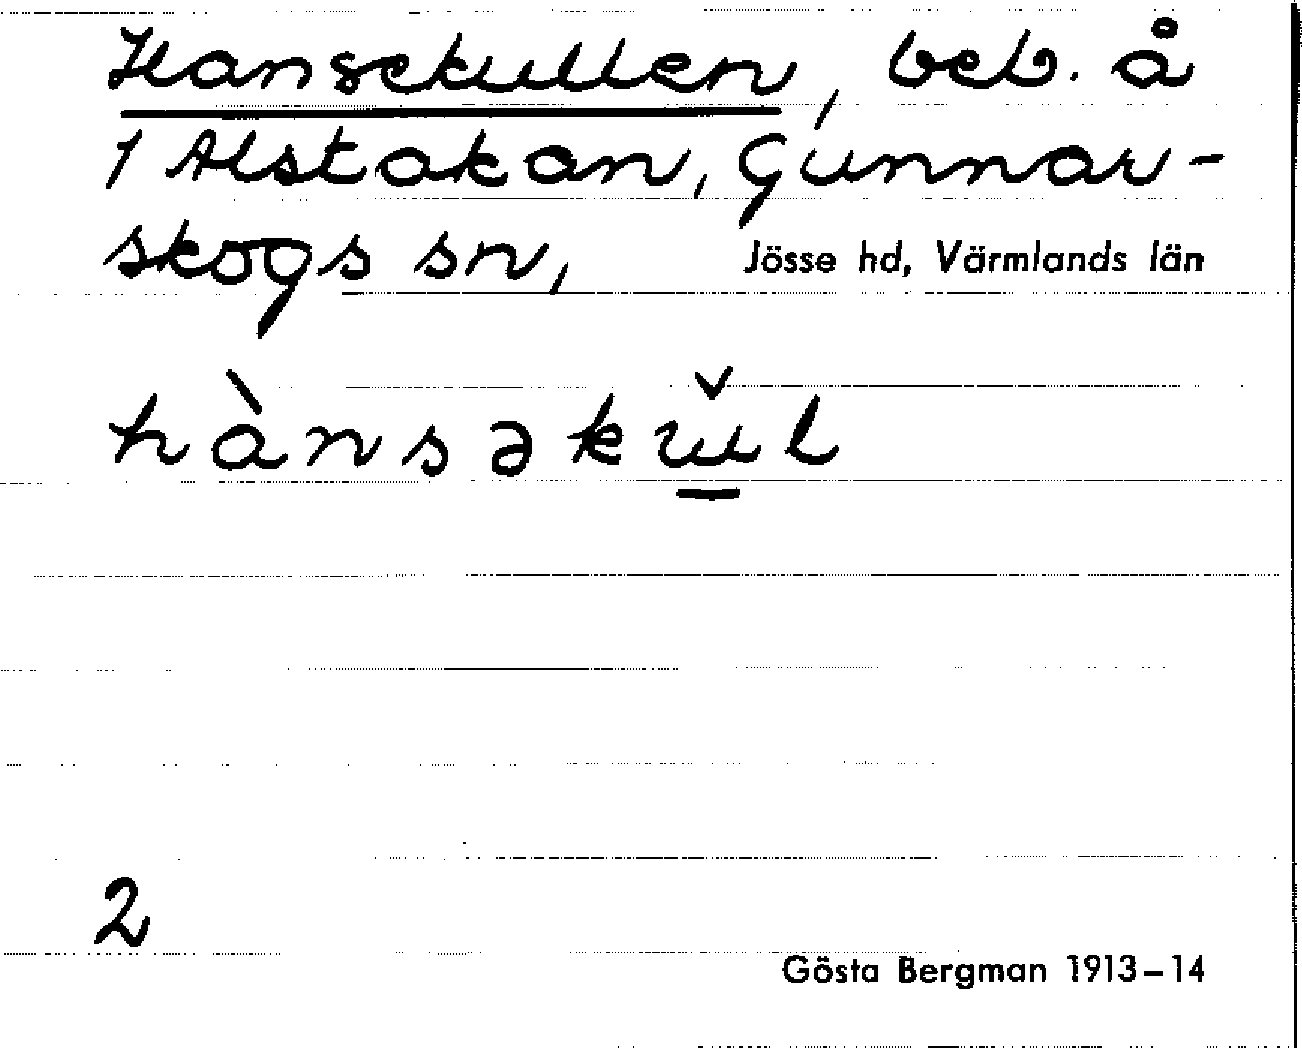 Hansekullen, beb. å
1 Alstakan, Gunnar-
skogs sn, Jösse hd, Värmlands län
hànsəkŭl
2
Gösta Bergman 1913–14